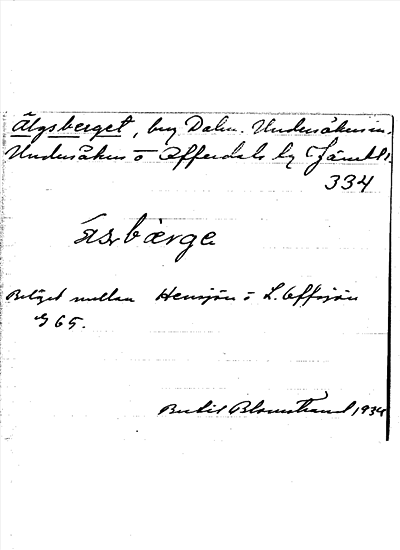 Älgsberget, by Daln. Undersåkers sn.
Undersåkers o Offerdals by Jämtl.
334
Beläget mellan Hensjön o L. Offsjön
S 65.
Bertil Blomstrand 1934